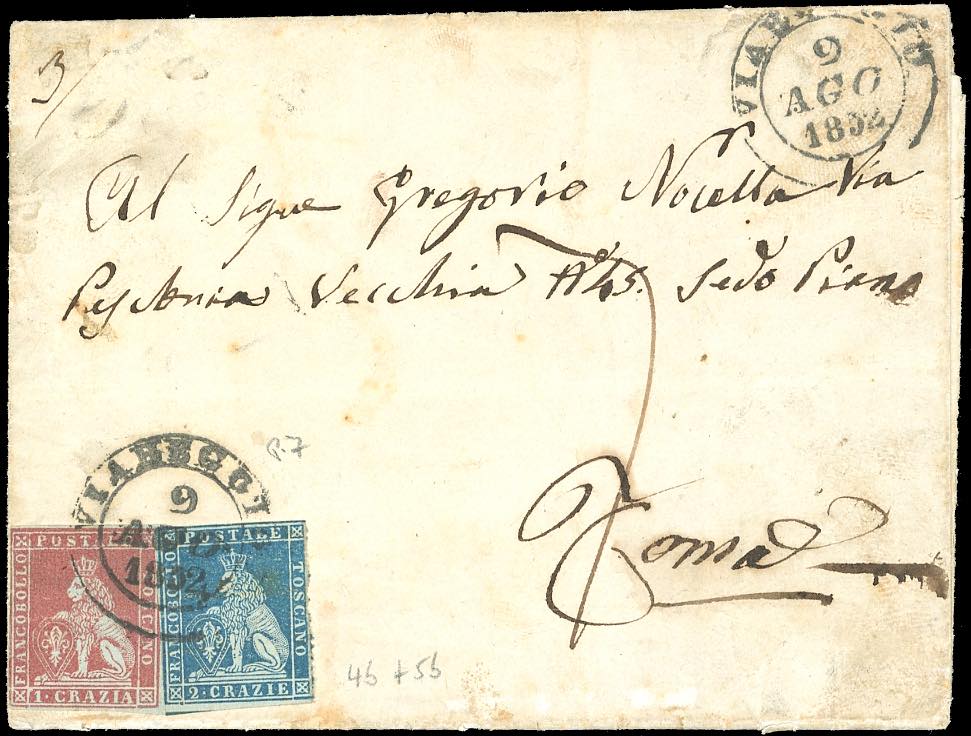 3/
VIAREGGIO
9
AGO
1852
Al Sigre Gregorio Nocella Via
Pescheria Vecchia N 45. Sedo Piano
7
Roma
P.7
VIAREGGI
9
AGO
1852
FRANCOBOLLO POSTALE TOSCANO
1·CRAZIA
FRANCOBOLLO POSTALE TOSCANO
2·CRAZIE
4b + 5b